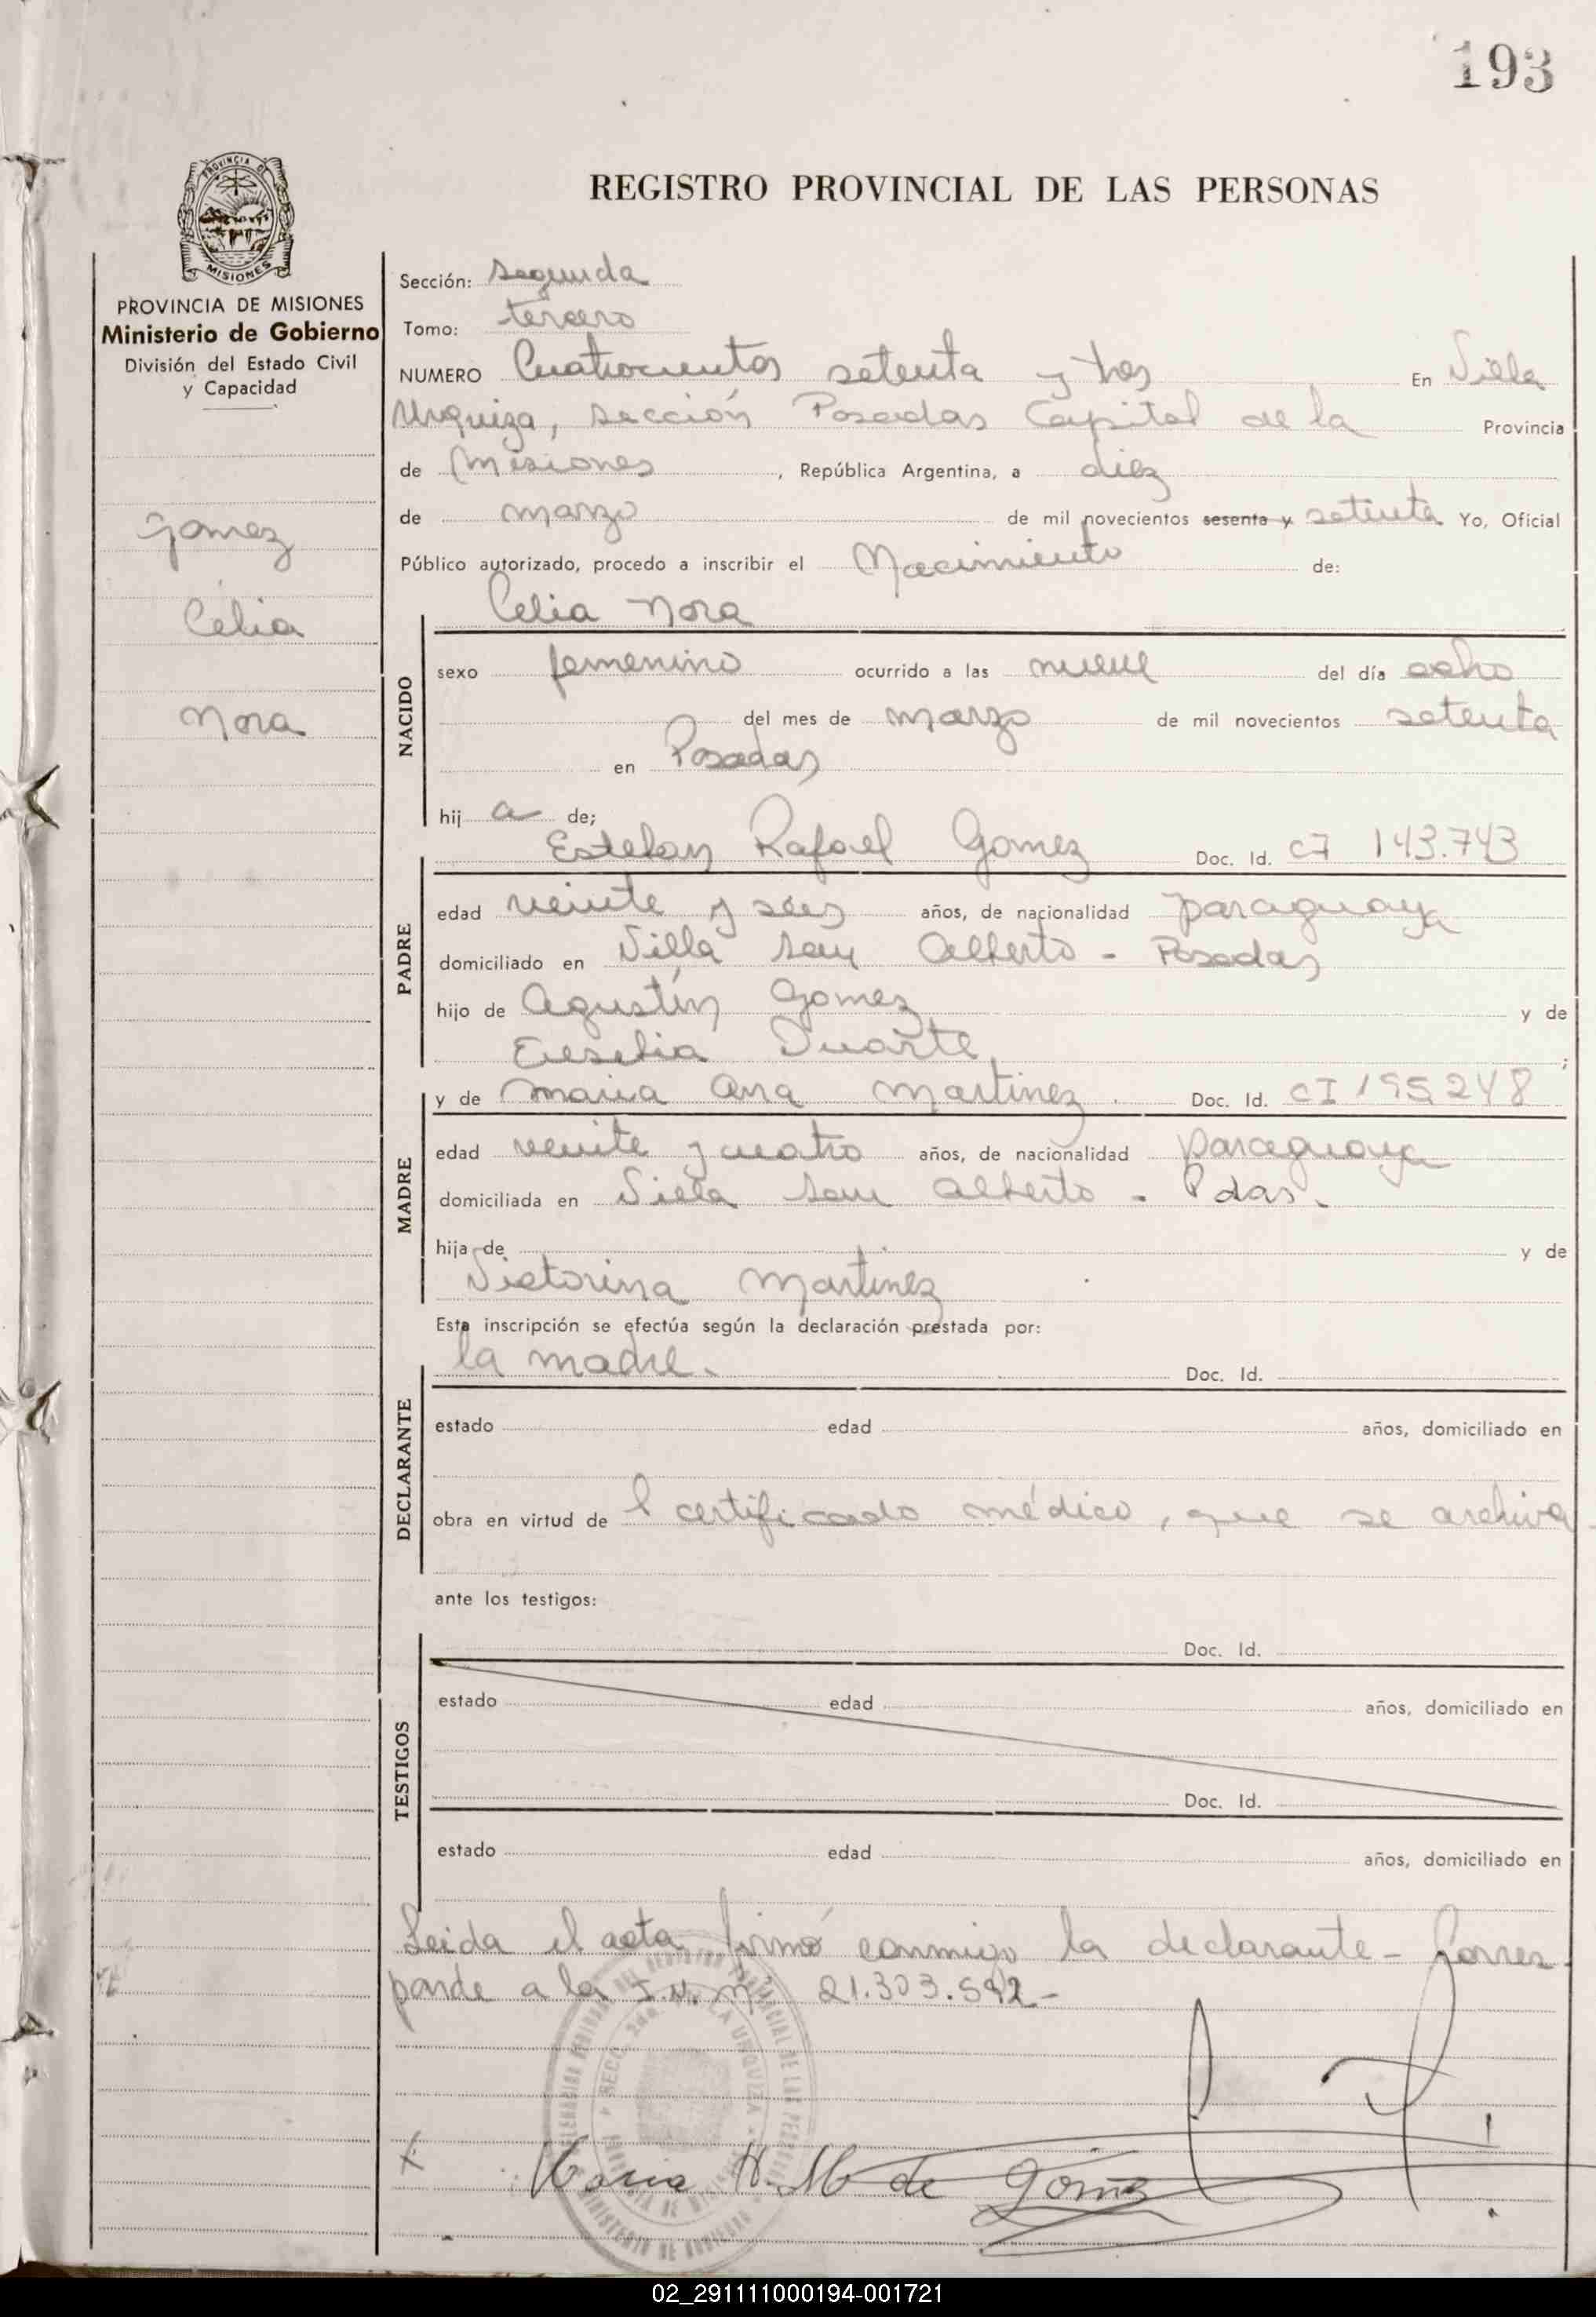 193
REGISTRO PROVINCIAL DE LAS PERSONAS
PROVINCIA DE MISIONES
Ministerio de Gobierno
División del Estado Civil
y Capacidad
Gomez
Celia
Nora
Sección: segunda
Tomo: tercero
NUMERO Cuatrocientos setenta y tres En Villa
Urquiza, sección Posadas Capital de la Provincia
de Misiones, República Argentina, a diez
de marzo de mil novecientos sesenta y setenta Yo, Oficial
Público autorizado, procedo a inscribir el Nacimiento de:
Celia Nora
NACIDO
sexo femenino ocurrido a las nueve del día ocho
del mes de marzo de mil novecientos setenta
en Posadas
hij a de;
Esteban Rafael Gomez Doc. Id. CI 143.743
PADRE
edad veinte y seis años, de nacionalidad paraguaya
domiciliado en Villa San Alberto - Posadas
hijo de Agustín Gomez y de
Eusebia Duarte;
y de Maria Ana Martinez Doc. Id. CI 195248
MADRE
edad veinte y cuatro años, de nacionalidad paraguaya
domiciliada en Villa San Alberto - Pdas.
hija de y de
Victorina Martinez
Esta inscripción se efectúa según la declaración prestada por:
la madre. Doc. Id.
DECLARANTE
estado edad años, domiciliado en
obra en virtud de l certificado médico, que se archiva
ante los testigos:
Doc. Id.
TESTIGOS
estado edad años, domiciliado en
Doc. Id.
estado edad años, domiciliado en
Leida el acta firmó conmigo la declarante - Corres
ponde a la I.N. Nº 21.303.592 -
Maria A. M de Gómez
02_291111000194-001721